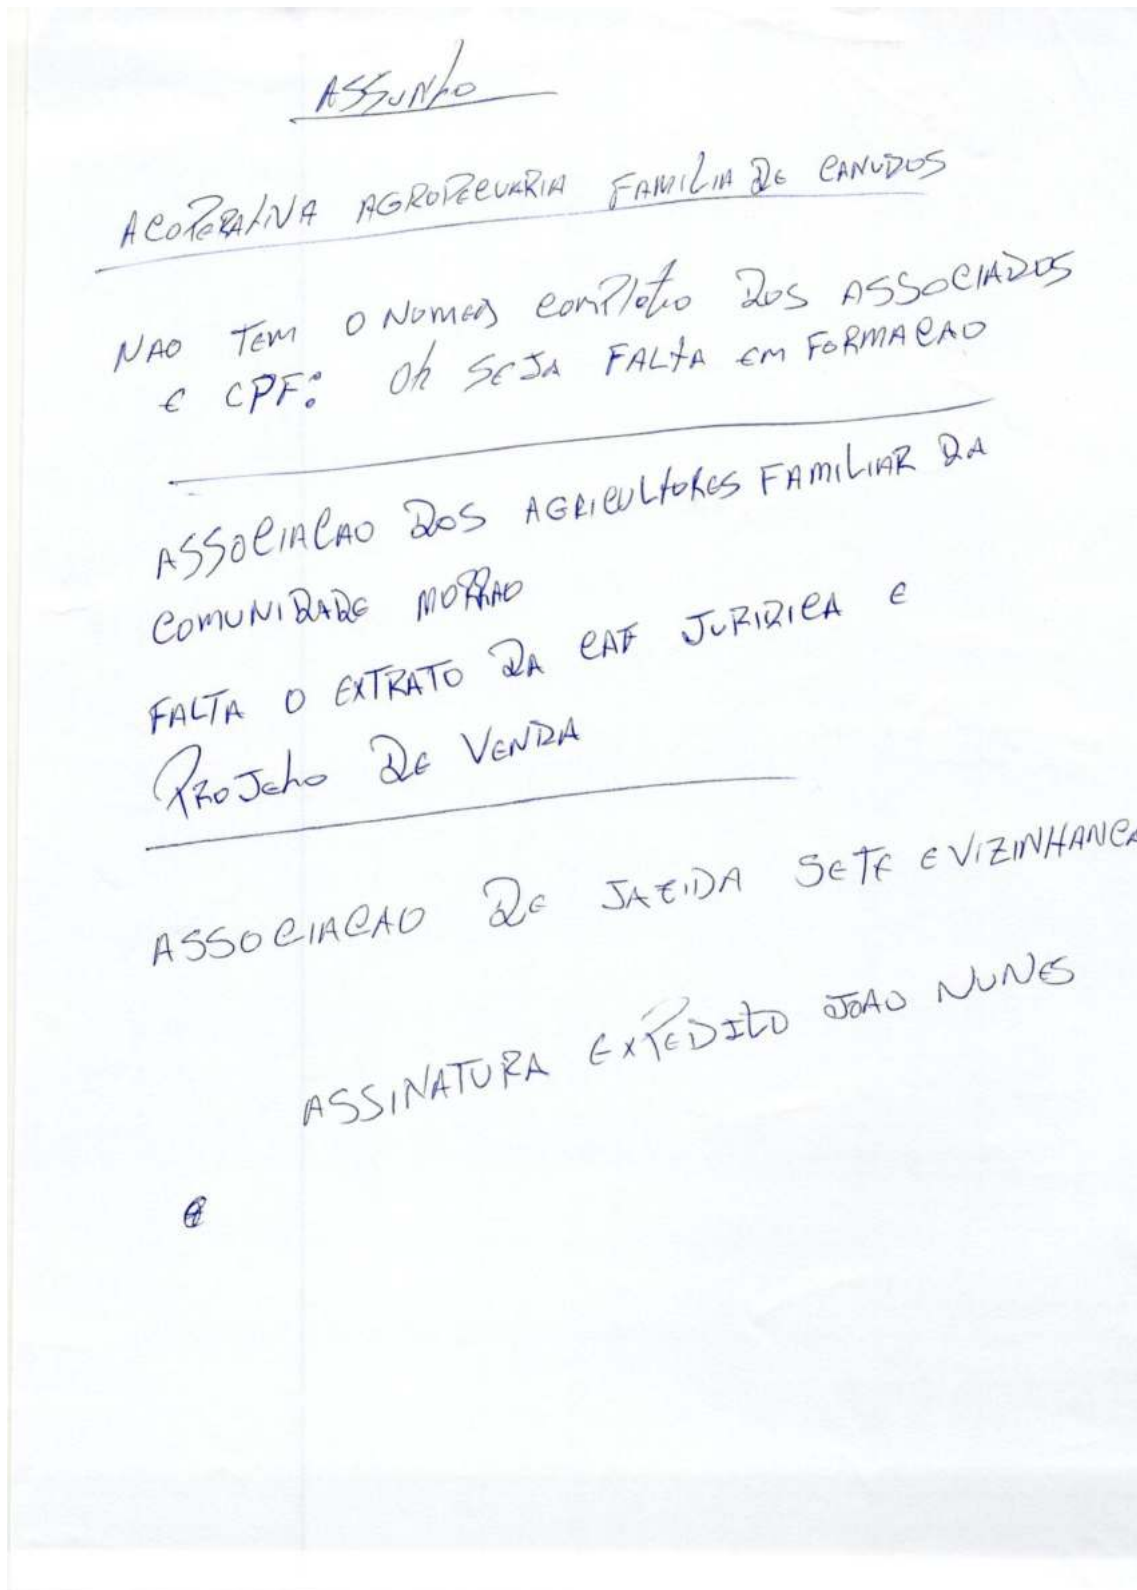 ASSUNTO
A COPERATIVA AGROPECUARIA FAMILIA DE CANUDOS
NAO TEM O NOMES COMPLETO DOS ASSOCIADOS
E CPF: OU SEJA FALTA EM FORMACAO
ASSOCIACAO DOS AGRICULTORES FAMILIAR DA
COMUNIDADE MORRAO
FALTA O EXTRATO DA CAF JURIDICA E
PROJETO DE VENDA
ASSOCIACAO DE JAZIDA SETE E VIZINHANCA
ASSINATURA EXPEDITO JOAO NUNES